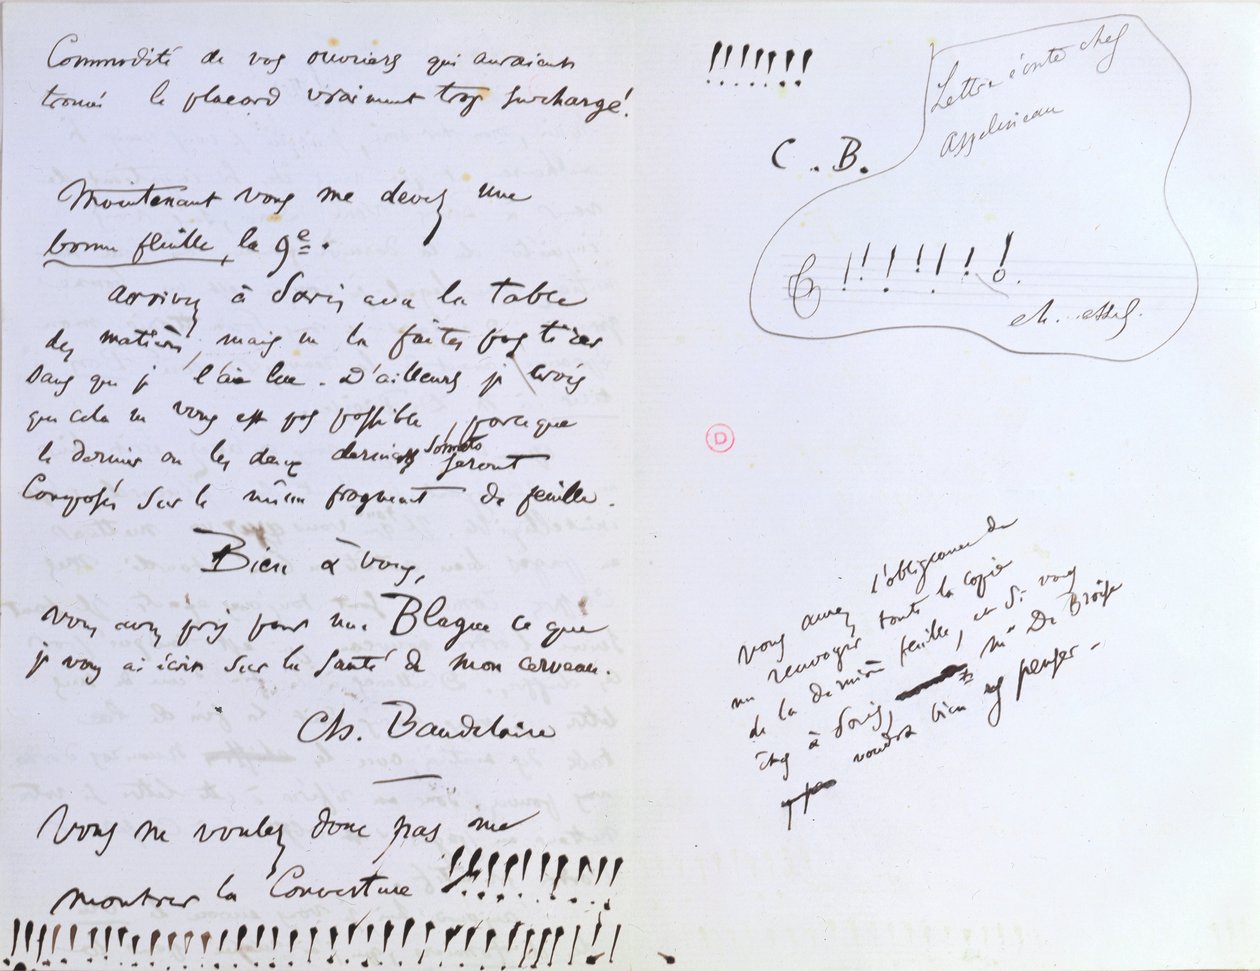 Commodité de vos ouvriers qui auraient
trouvé le placard vraiment trop surchargé!
Maintenant vous me devez une
bonne feuille, la 9e.
arrivez à Paris avec la table
des matières, mais ne la faites pas tirer
sans que je l'aie lue. D'ailleurs je crois
que cela ne vous est pas possible, parce que
le dernier ou les deux derniers sonnets seront
composés sur le même fragment de feuille.
Bien à vous,
vous avez pris pour une Blague ce que
je vous ai écrit sur la santé de mon cerveau.
Ch. Baudelaire
Vous ne voulez donc pas me
montrer la Couverture !!!!!!!!!!!!
!!!!!!!!!!!!!!!!!!!!!!!!!!!!!!!!!!!!
!!!!!!!
C. B.
Lettre écrite chez
Asselineau
!!!!!!!
ch. assel.
D
vous aurez l'obligeance de
me renvoyer toute la copie
de la dernière feuille, et si vous
êtes à Paris, Mr De Broise
voudra bien y penser -